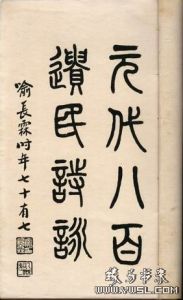 元代八百
遺民詩詠
喻長霖時年七十有七
WWW.WSL.COM